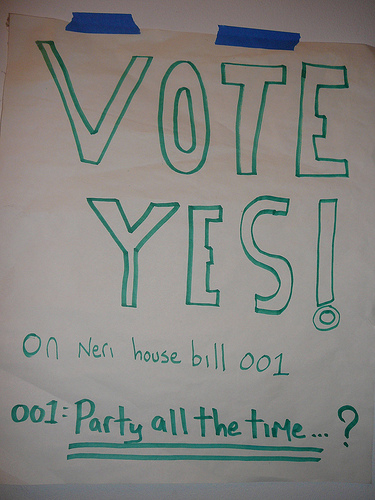 VOTE
YES!
On Neri house bill 001
001: Party all the time...?